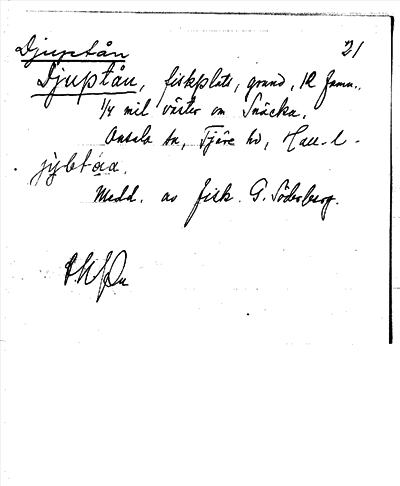 Djuptån 21
Djuptån, fiskplats, grund, 12 famn.
1/4 mil väster om Snäcka.
Onsala sn, Fjäre hd, Hall. l.
Medd. av fisk. G. Söderberg.